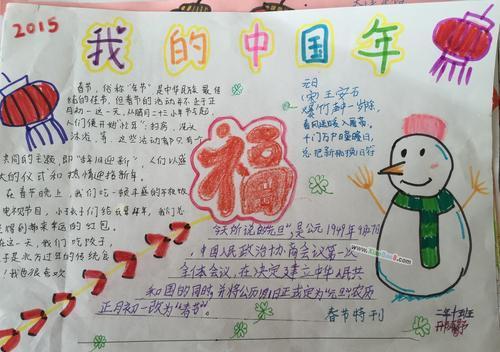 2015
我的中国年
春节，俗称"年节"是中华民族最隆
重的佳节，但春节的活动并不止于正
月初一这一天，从腊月二十三小年节起，
人们便开始"忙年"：扫房、洗头
沐浴
等，这些活动
共同的主题，即"辞旧迎新"，人们以盛
大的仪式和热情迎接新年。
在春节晚上，我们吃
电视节目，小孩子们给
红包。
在这一天，我们吃饺子，
子是永万过年的传统食
我也很喜欢
元旦
(宋)王安石
爆竹声中一岁除，
春风送暖入屠苏。
千门万户曈曈日，
总把新桃换旧符
福
今天所说的"元旦"，是公元1949年9月27日
，中国人民政治协商会议第一次
全体会议，在决定建立中华人民共
和国的同时，并将公历1月1日正式定为"元旦"农历
正月初一改为"春节"。
春节特刊
二年十五班